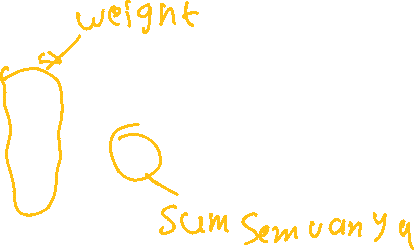 weight
sum semuanya